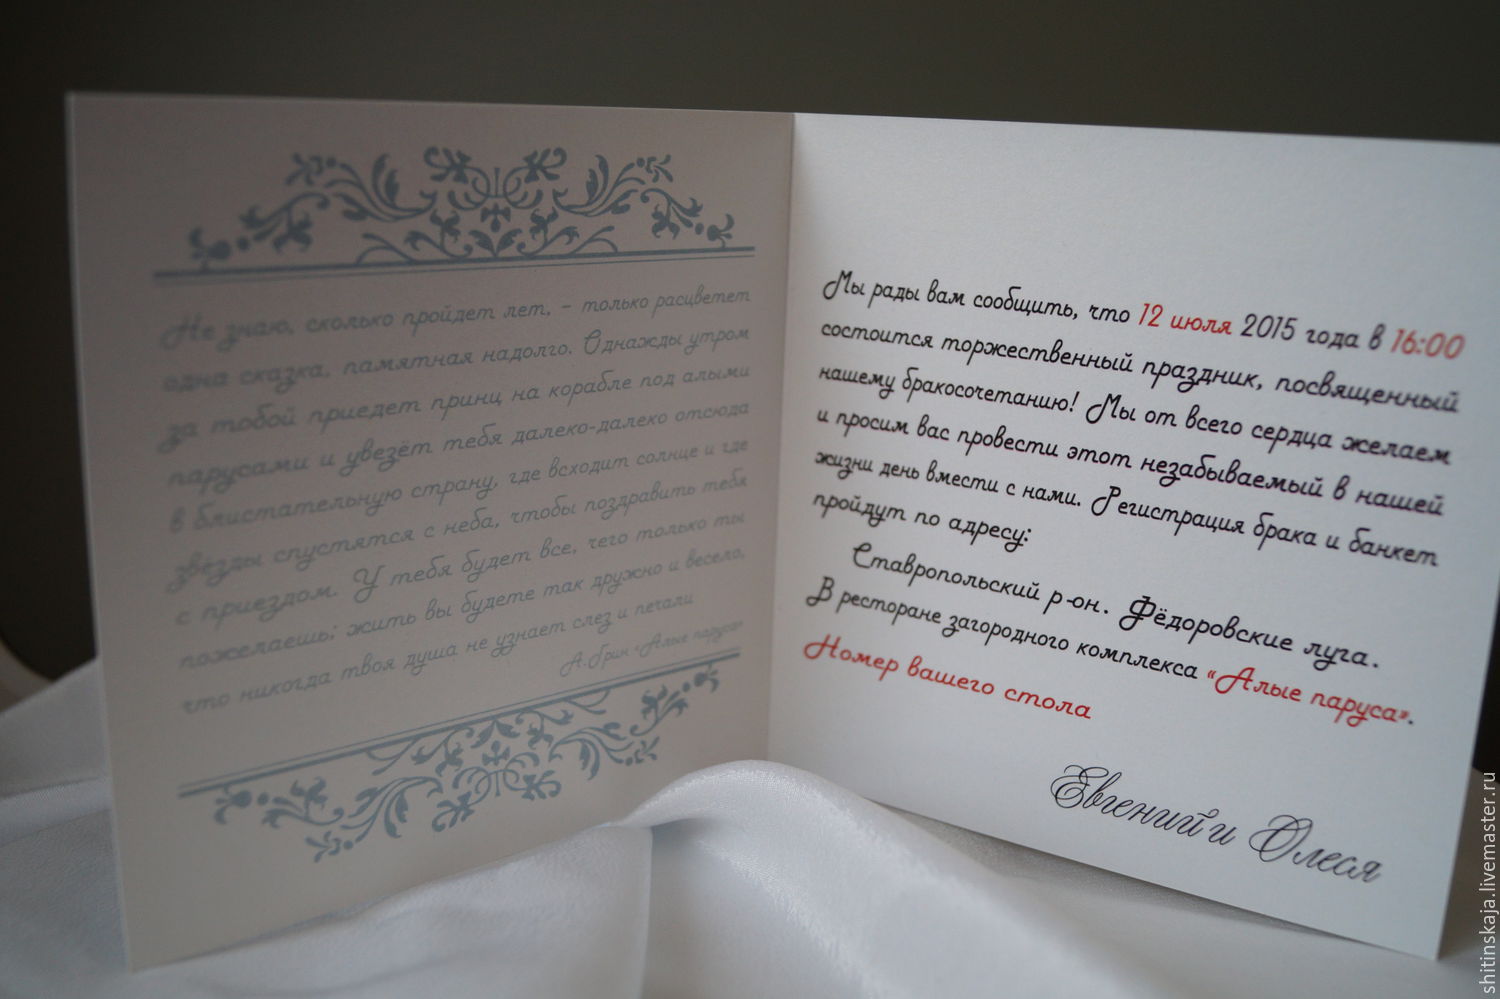 Не знаю, сколько пройдет лет, – только расцветет
одна сказка, памятная надолго. Однажды утром
за тобой приедет принц на корабле под алыми
парусами и увезёт тебя далеко-далеко отсюда
в блистательную страну, где всходит солнце и где
звёзды спустятся с неба, чтобы поздравить тебя
с приездом. У тебя будет все, чего только ты
пожелаешь; жить вы будете так дружно и весело,
что никогда твоя душа не узнает слез и печали
А.Грин «Алые паруса»
Мы рады вам сообщить, что 12 июля 2015 года в 16:00
состоится торжественный праздник, посвященный
нашему бракосочетанию! Мы от всего сердца желаем
и просим вас провести этот незабываемый в нашей
жизни день вместе с нами. Регистрация брака и банкет
пройдут по адресу:
Ставропольский р-он. Фёдоровские луга.
В ресторане загородного комплекса “Алые паруса».
Номер вашего стола
Евгений и Олеся
shitinskaja.livemaster.ru